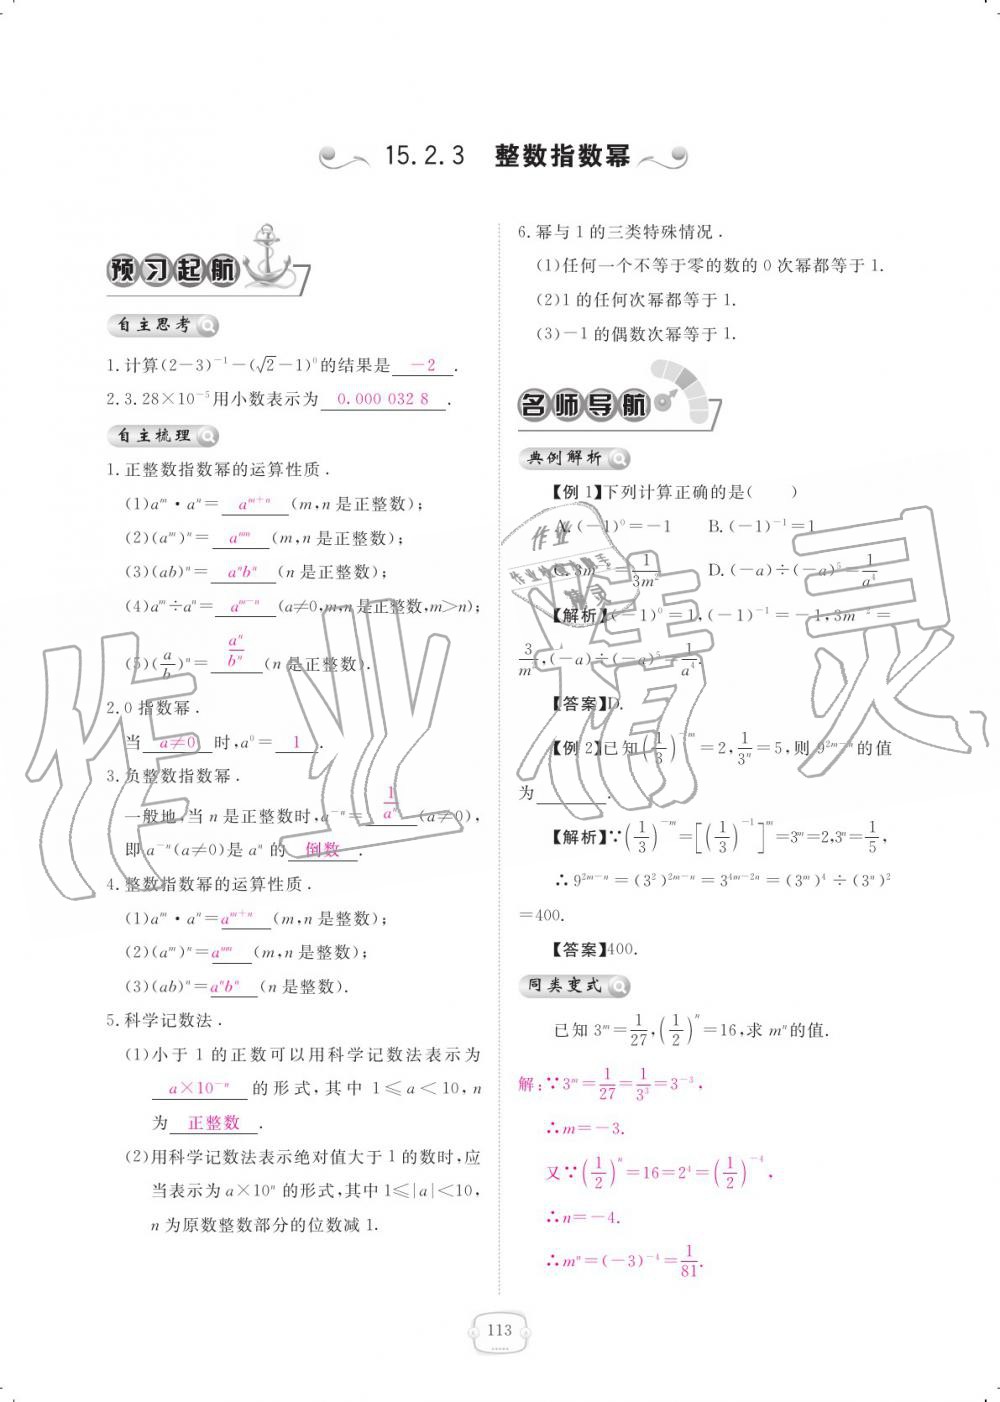 15.2.3 整数指数幂
预习起航
自主思考
1.计算(2-3)⁻¹-(√2-1)⁰的结果是 -2 .
2.3.28×10⁻⁵用小数表示为 0.000 032 8 .
自主梳理
1.正整数指数幂的运算性质.
(1)aᵐ·aⁿ= aᵐ⁺ⁿ (m,n是正整数);
(2)(aᵐ)ⁿ= aᵐⁿ (m,n是正整数);
(3)(ab)ⁿ= aⁿbⁿ (n是正整数);
(4)aᵐ÷aⁿ= aᵐ⁻ⁿ (a≠0,m,n是正整数,m>n);
(5)(a/b)ⁿ= aⁿ/bⁿ (n是正整数).
2.0指数幂.
当 a≠0 时,a⁰= 1 .
3.负整数指数幂.
一般地,当n是正整数时,a⁻ⁿ= 1/aⁿ (a≠0),
即a⁻ⁿ(a≠0)是aⁿ的 倒数 .
4.整数指数幂的运算性质.
(1)aᵐ·aⁿ=aᵐ⁺ⁿ (m,n是整数);
(2)(aᵐ)ⁿ=aᵐⁿ (m,n是整数);
(3)(ab)ⁿ=aⁿbⁿ (n是整数).
5.科学记数法.
(1)小于1的正数可以用科学记数法表示为
a×10⁻ⁿ 的形式,其中1≤a<10,n
为 正整数 .
(2)用科学记数法表示绝对值大于1的数时,应
当表示为a×10ⁿ的形式,其中1≤|a|<10,
n为原数整数部分的位数减1.
6.幂与1的三类特殊情况.
(1)任何一个不等于零的数的0次幂都等于1.
(2)1的任何次幂都等于1.
(3)-1的偶数次幂等于1.
名师导航
典例解析
【例1】下列计算正确的是(  )
A.(-1)⁰=-1 B.(-1)⁻¹=1
C.3m⁻²=1/3m² D.(-a)÷(-a)⁵=1/a⁴
【解析】(-1)⁰=1,(-1)⁻¹=-1,3m⁻²=
3/m²,(-a)÷(-a)⁵=1/a⁴.
【答案】D.
【例2】已知(1/3)⁻ᵐ=2,1/3ⁿ=5,则9²ᵐ⁻ⁿ的值
为 .
【解析】∵(1/3)⁻ᵐ=[(1/3)⁻¹]ᵐ=3ᵐ=2,3ⁿ=1/5,
∴9²ᵐ⁻ⁿ=(3²)²ᵐ⁻ⁿ=3⁴ᵐ⁻²ⁿ=(3ᵐ)⁴÷(3ⁿ)²
=400.
【答案】400.
同类变式
已知3ᵐ=1/27,(1/2)ⁿ=16,求mⁿ的值.
解:∵3ᵐ=1/27=1/3³=3⁻³,
∴m=-3.
又∵(1/2)ⁿ=16=2⁴=(1/2)⁻⁴,
∴n=-4.
∴mⁿ=(-3)⁻⁴=1/81.
113
作业精灵